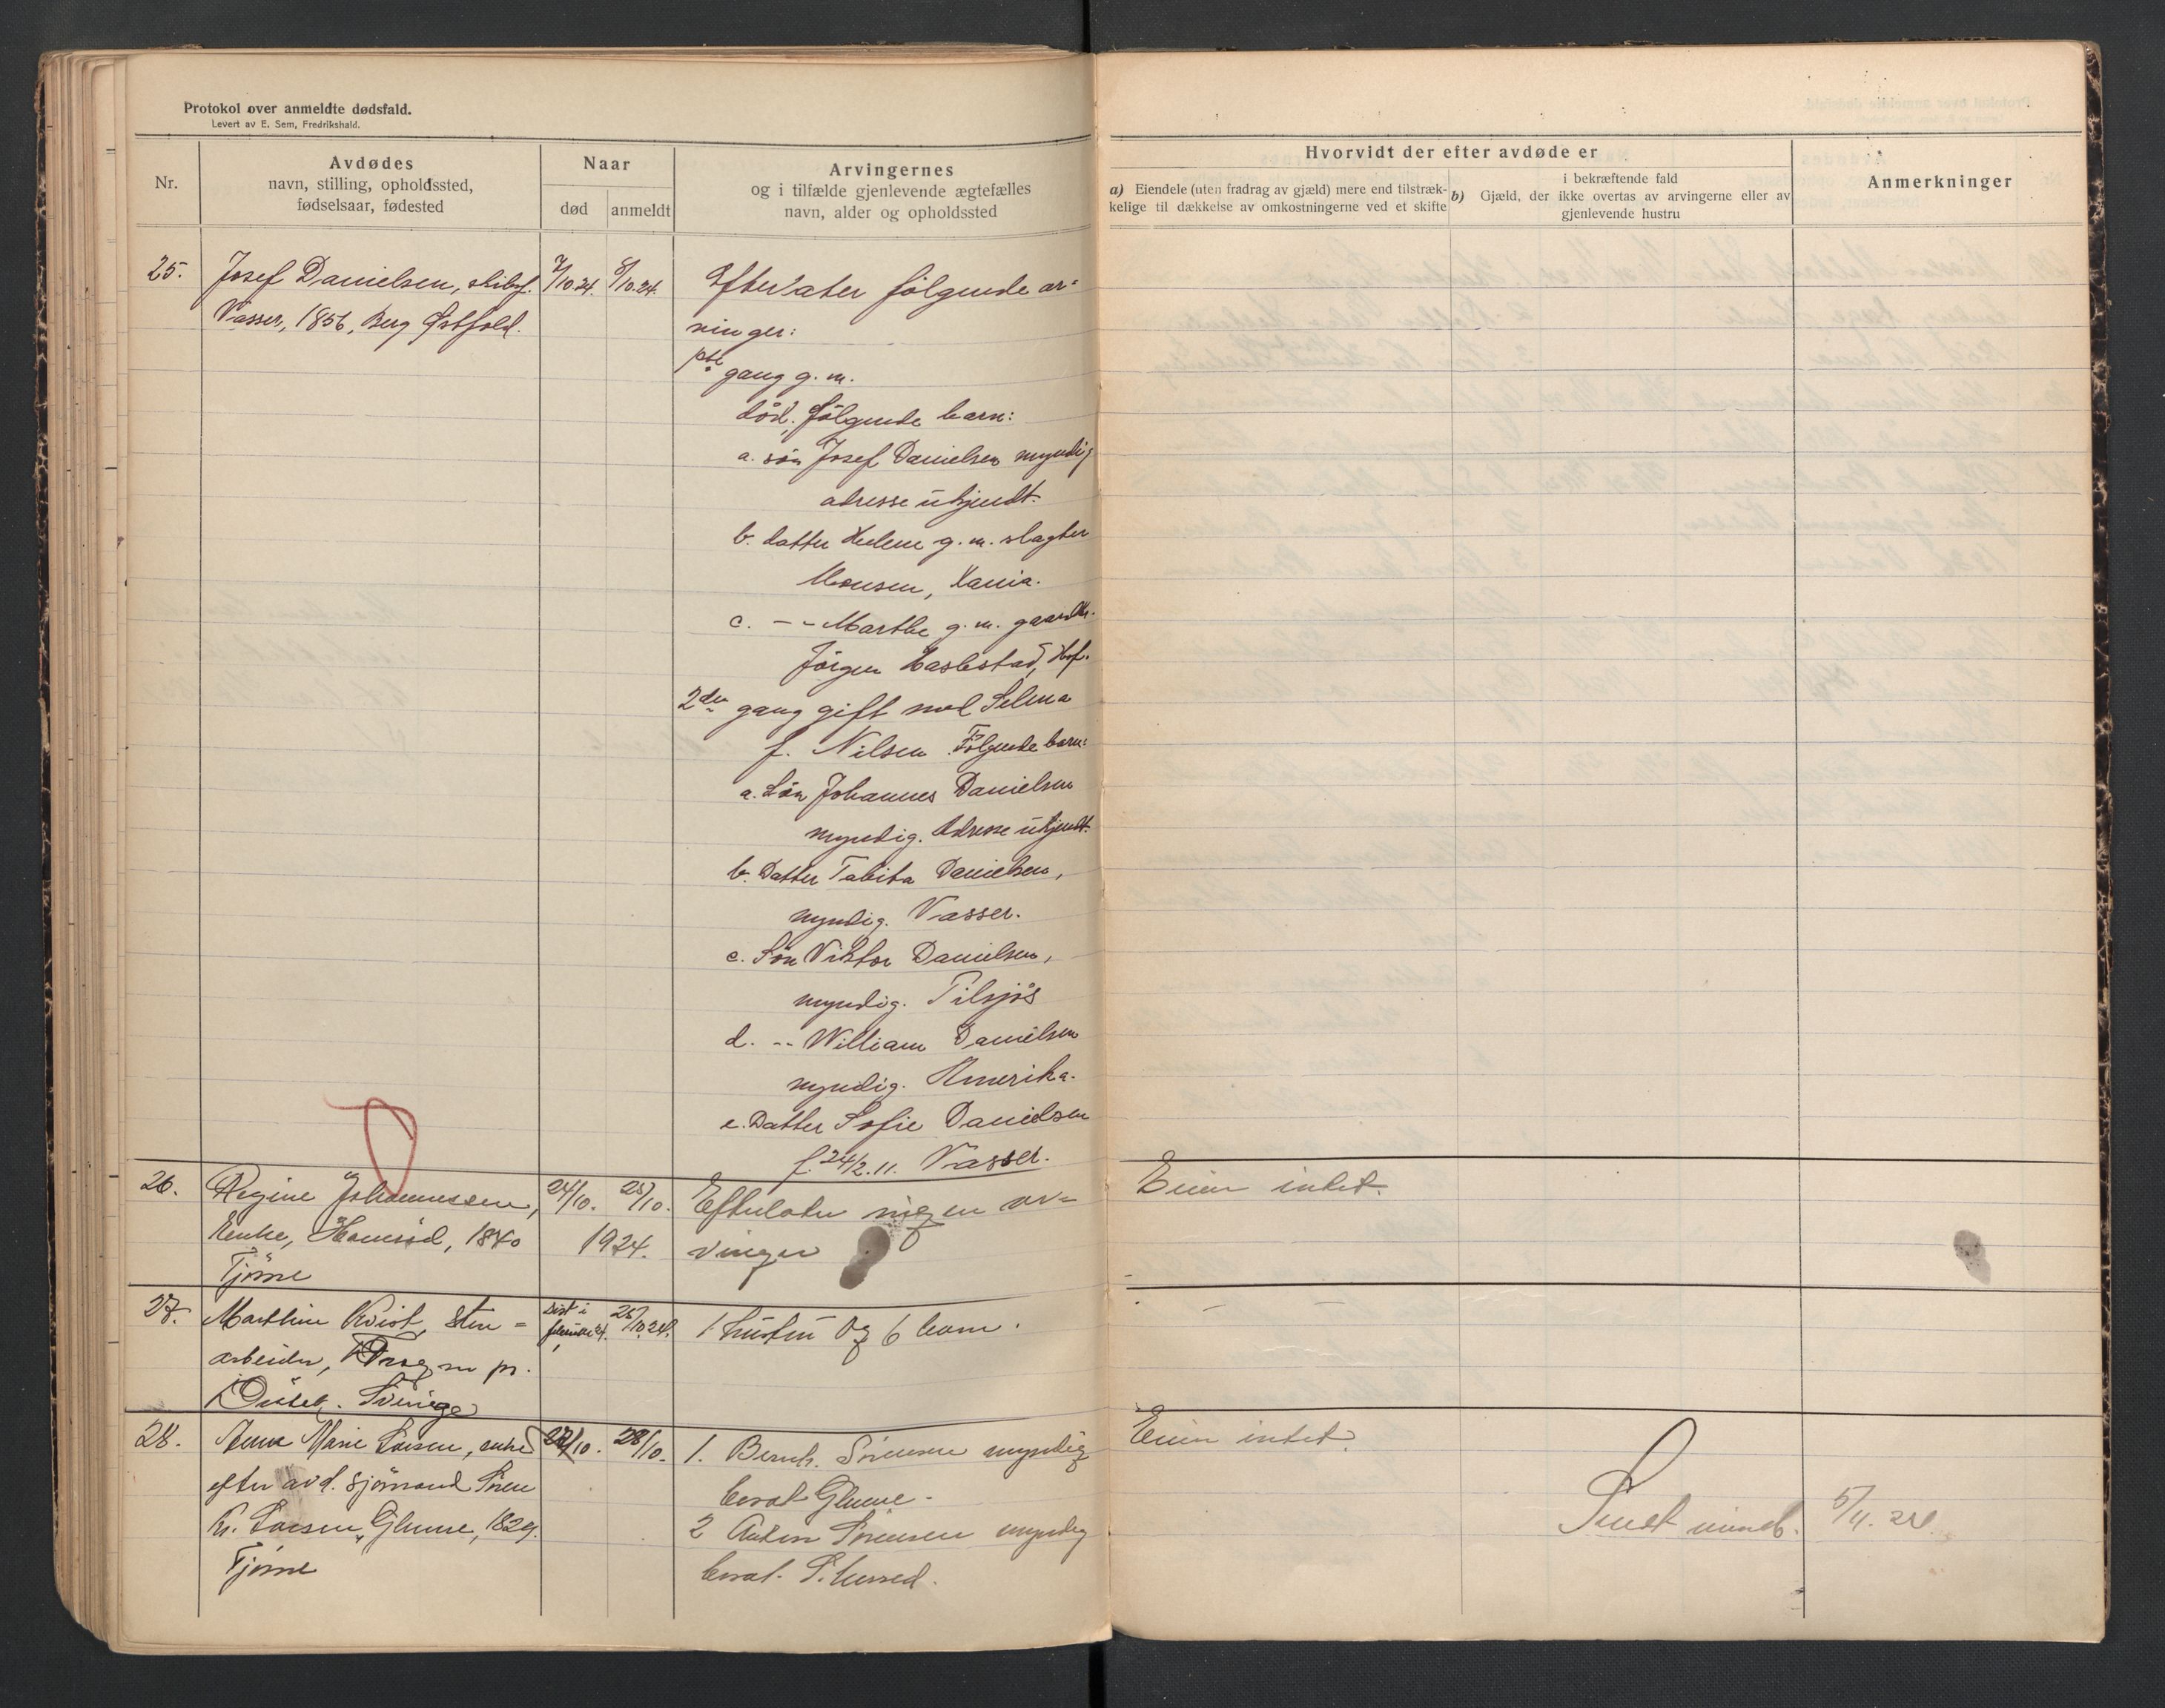 Protokol over anmeldte dødsfald.
Levert av E. Sem, Fredrikshald.
Nr.
Avdødes
navn, stilling, opholdssted,
fødselsaar, fødested
Naar
død
anmeldt
Arvingernes
og i tilfælde gjenlevende ægtefælles
navn, alder og opholdssted
Hvorvidt der efter avdøde er
a) Eiendele (uten fradrag av gjæld) mere end tilstræk-
kelige til dækkelse av omkostningerne ved et skifte
i bekræftende fald
b) Gjæld, der ikke overtas av arvingerne eller av
gjenlevende hustru
Anmerkninger
25.
Josef Danielsen, skibsf.
Vasser, 1856, Berg Østfold.
7/10.24.
8/10.24.
Efterlater følgende ar=
vinger:
1ste gang g. m.
död. Følgende barn:
a. søn Josef Danielsen myndig
adresse ukjendt.
b. datter Helene g. m. slagter
Monsen, Kania.
c. -- Marthe g. m. gaardbr.
Jörgen Haslestad, Hof.
2den gang gift med Selma
f. Nilsen. Følgende barn:
a. Sön Johannes Danielsen
myndig. Adresse ukjendt.
b. Datter Tabita Danielsen,
myndig. Vasser.
c. Sön Viktor Danielsen,
myndig. Tilsjös
d. -- William Danielsen
myndig. Amerika.
e. Datter Sofie Danielsen
f. 24/2.11. Vasser.
26.
Regine Johannessen,
Enke, 1840
Tjöme
24/10.
25/10.
1924.
Efterlater ingen ar=
vinger
Eier intet.
27.
Marthin Kvist, Sten=
arbeider, pr.
Sverige
Dist i
25/10.24.
1 hustru og 6 barn.
28.
Anna Marie Larsen, enke
efter avd. sjömand Sören
Kr. Larsen, Glenne, 1829.
Tjöme
27/10.
28/10.
1. Bernh. Sörensen myndig
bosat Glenne.
2 Anton Sörensen myndig
bosat
Eier intet.
Sendt
5/11. 24